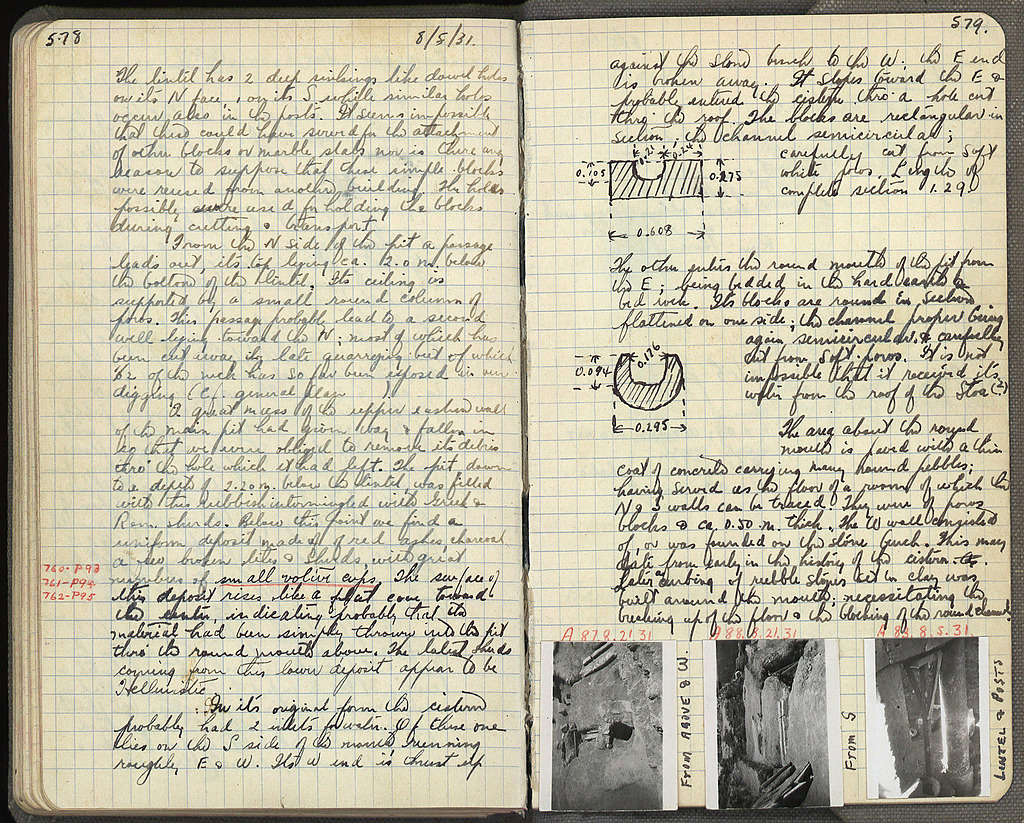 578
8/5/31.
The lintel has 2 deep sinkings like dowel holes
on its N face, 1 on its S while similar holes
occur also in the posts. It seems impossible
that these could have served for the attachment
of other blocks or marble slabs nor is there any
reason to suppose that these simple blocks
were reused from another building. The holes
possibly were used for holding the blocks
during cutting & transport.
From the N side of the pit a passage
leads out, its top lying ca. 12.0 m. below
the bottom of the lintel. Its ceiling is
supported by a small round column of
poros. This passage probably lead to a second
well lying toward the N; most of which has
been cut away by late quarrying but of which
1/2 of the neck has so far been exposed in our
digging (Cf. general plan ).
A great mass of the upper eastern wall
of the main pit had given way & fallen in
so that we were obliged to remove its debris
thro' the hole which it had left. The pit down
to a depth of 7.20 m. below the lintel was filled
with this rubbish intermingled with Greek &
Rom. sherds. Below this point we find a
uniform deposit made up of red ashes charcoal
a few broken tiles & sherds, with great
760-P93
numbers of small votive cups. The surface of
761-P94
this deposit rises like a flat cone toward
762-P95
the center, indicating probably that the
material had been simply thrown into the pit
thro' the round mouth above. The latest sherds
coming from this lower deposit appear to be
Hellenistic.
In its original form the cistern
probably had 2 inlets for water. Of these one
lies on the S side of the mouth, running
roughly E & W. Its W end is thrust up
579.
against the stone bench to the W. The E end
is broken away. It slopes toward the E &
probably entered the cistern thro' a hole cut
thro' the roof. The blocks are rectangular in
section; the channel semicircular;
carefully cut from soft
white poros. Length of
complete section 1.29.
0.21 0.24
0.105 0.175
0.608
The other enters the round mouth of the pit from
the E; being bedded in the hard earth &
bed rock. Its blocks are round in section
flattened on one side; the channel proper being
again semicircular & carefully
cut from soft poros. It is not
impossible that it received its
water from the roof of the Stoa (?)
0.176
0.094
0.295
The area about the round
mouth is paved with a thin
coat of concrete carrying many round pebbles;
having served as the floor of a room of which the
N & S walls can be traced. They were of poros
blocks & ca. 0.50 m. thick. The W wall consisted
of, or was founded on the stone bench. This may
date from early in the history of the cistern.
Later curbing of rubble stones set in clay was
built around the mouth; necessitating the
breaking up of the floor & the blocking of the round channel.
A 87 8.21.31
A 88 8.21.31
8.5.31.
FROM ABOVE & W.
FROM S
LINTEL & POSTS